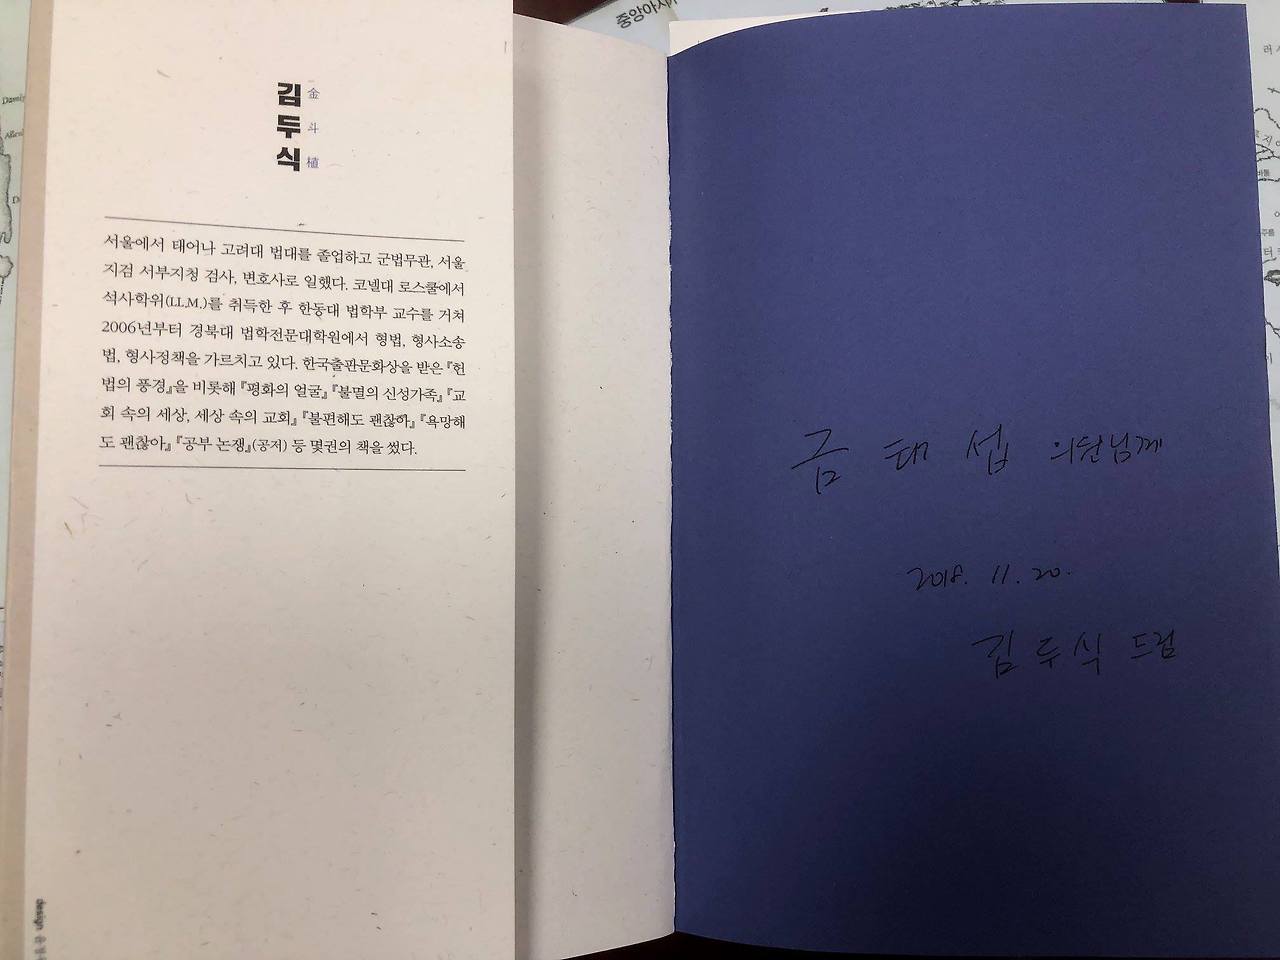 중앙아시
김 金
두 斗
식 植
서울에서 태어나 고려대 법대를 졸업하고 군법무관, 서울
지검 서부지청 검사, 변호사로 일했다. 코넬대 로스쿨에서
석사학위(LL.M.)를 취득한 후 한동대 법학부 교수를 거쳐
2006년부터 경북대 법학전문대학원에서 형법, 형사소송
법, 형사정책을 가르치고 있다. 한국출판문화상을 받은 『헌
법의 풍경』을 비롯해 『평화의 얼굴』 『불멸의 신성가족』 『교
회 속의 세상, 세상 속의 교회』 『불편해도 괜찮아』 『욕망해
도 괜찮아』 『공부 논쟁』(공저) 등 몇권의 책을 썼다.
design
금 태 섭 의원님께
2018. 11. 20.
김 두 식 드림